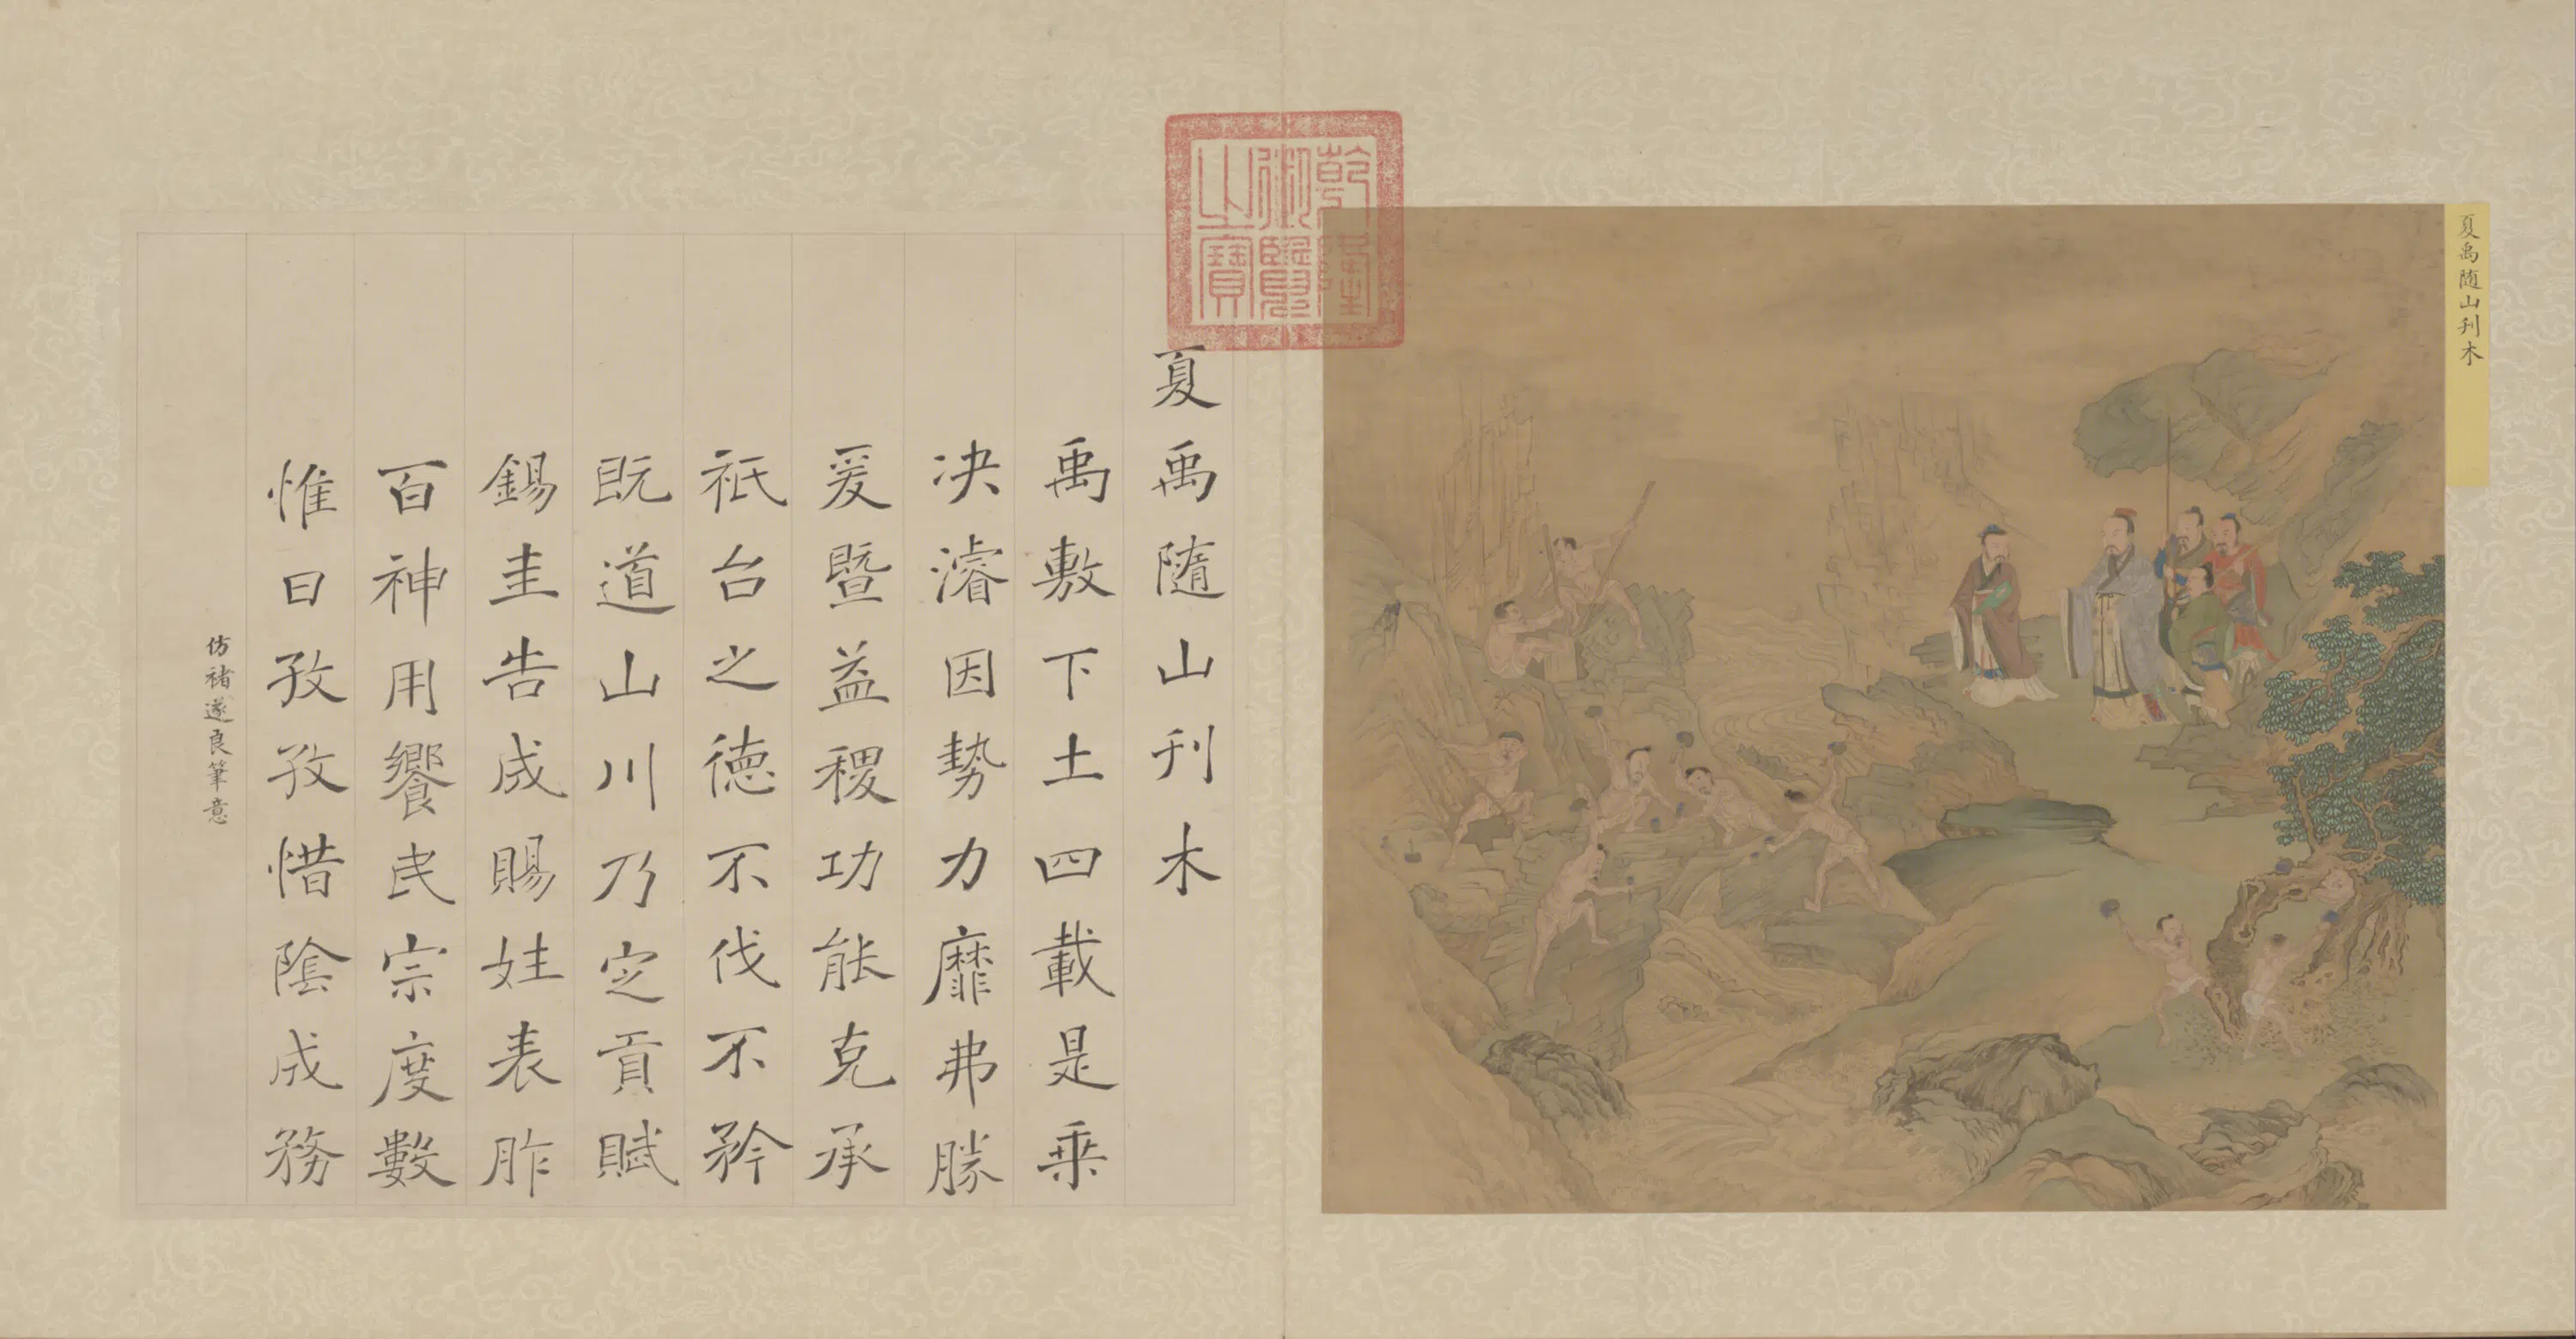 夏禹随山刋木
乾隆
御覽
之寶
夏禹隨山刋木
禹敷下土四載是乗
决濬因勢力靡弗勝
爰暨益稷功能克承
祇台之德不伐不矜
既道山川乃定貢賦
錫圭告成賜姓表胙
百神用饗民宗度數
惟日孜孜惜陰成務
仿褚遂良筆意